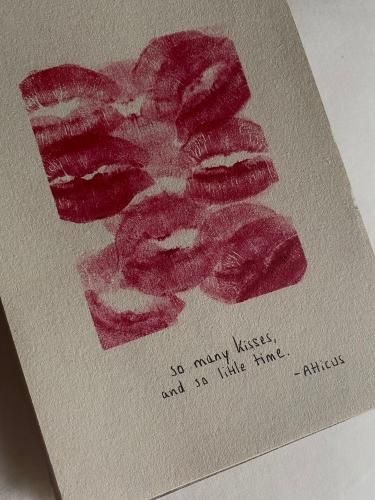 so many kisses,
and so little time.
-Atticus